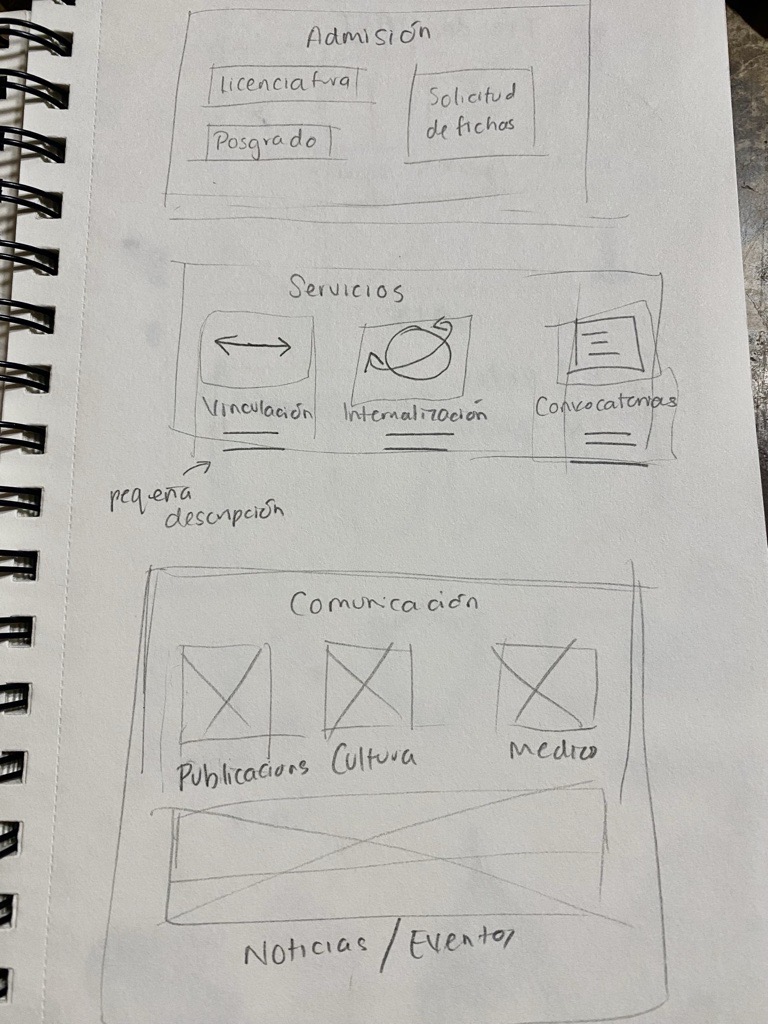 Admisión
Licenciatura
Solicitud
de fichas
Posgrado
Servicios
Vinculación
Internalización
Convocatorias
pequeña
descripción
Comunicación
Publicacions
Cultura
Medico
Noticias / Eventos